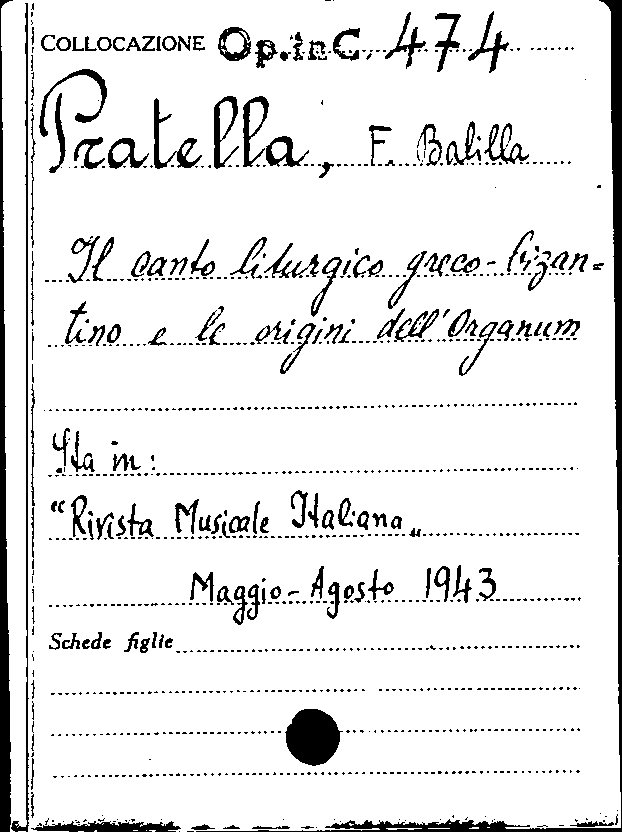 COLLOCAZIONE Op.in C. 474
Pratella, F. Balilla
Il canto liturgico greco-bizan=
tino e le origini dell'Organum
Sta in:
"Rivista Musicale Italiana„
Maggio-Agosto 1943
Schede figlie